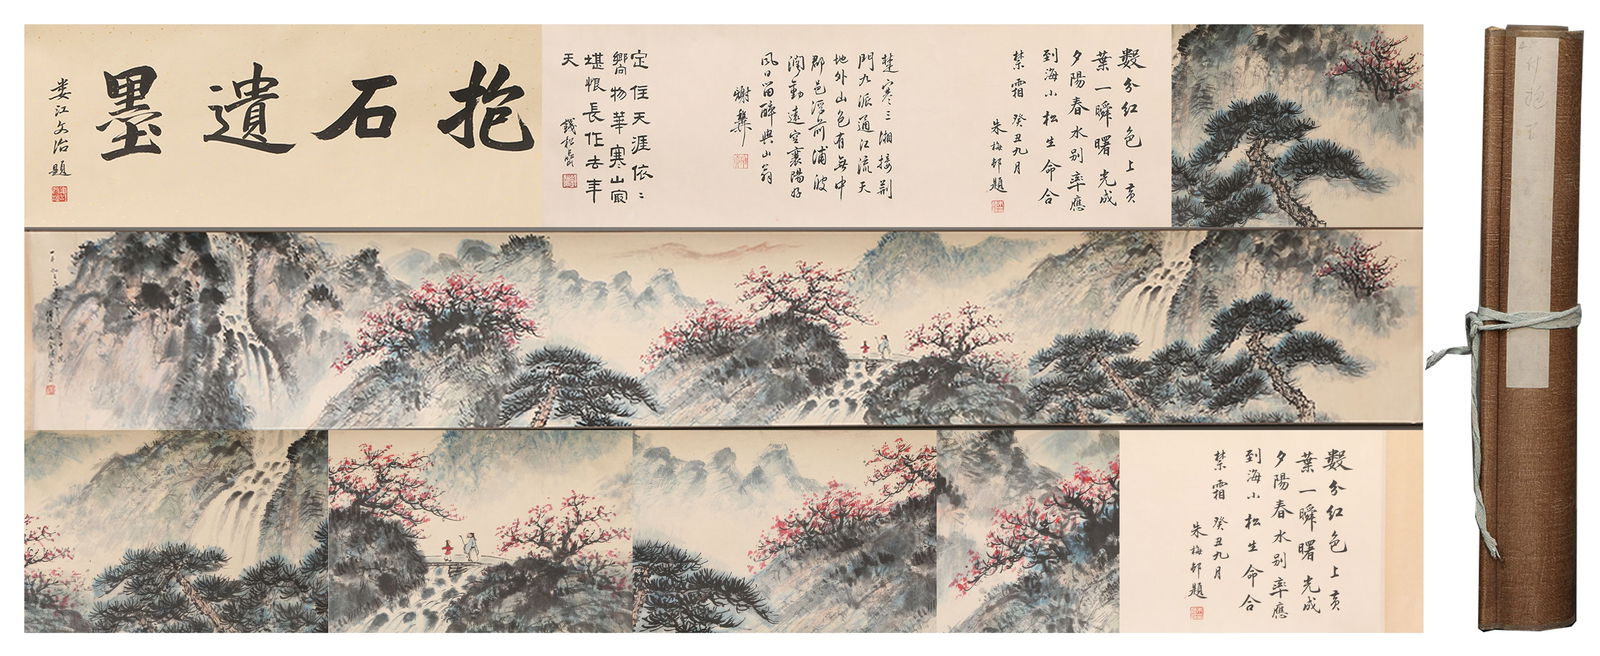 抱石遺墨
婁江文治題
數分紅色上黃
葉一瞬曙光成
夕陽春水别率應
到海小松生命合
禁霜 癸丑九月
朱梅邨題
楚塞三湘接荆
門九派通江流天
地外山色有無中
郡邑浮前浦波
瀾動遠空襄陽好
風日留醉與山翁
謝
定住天涯依〻
嚮物華寒山寂
堪恨長作去年
天
錢松嵒
數分紅色上黃
葉一瞬曙光成
夕陽春水别率應
到海小松生命合
禁霜 癸丑九月
朱梅邨題